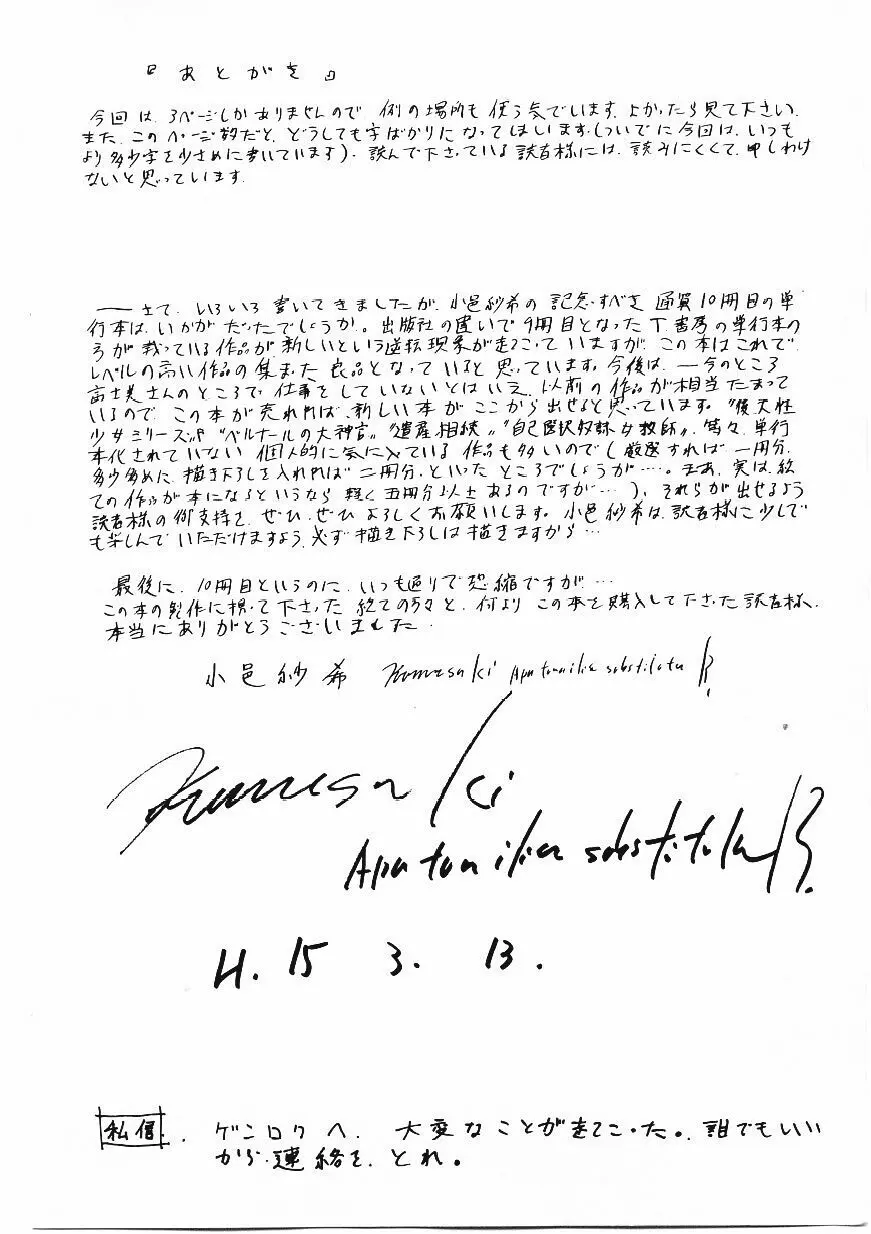 『あとがき』
今回は、3ページしかありませんので、例の場所も使う気でいます。よかったら見て下さい。
また、このページ数だと、どうしても字ばかりになってしまいます(ついでに今回は、いつも
より多少字を少さめに書いています)。読んで下さっている読者様には、読みにくくて、申しわけ
ないと思っています。
――さて、いろいろ書いてきましたが、小邑紗希の記念すべき通算10冊目の単
行本は、いかがだったでしょうか。出版社の違いで9冊目となったT書房の単行本の
方が載っている作品が新しいという逆転現象が起こっていますが、この本はこれで、
レベルの高い作品の集まった良品となっていると思っています。今後は、―今のところ
富士美さんのところで仕事をしていないとはいえ、以前の作品が相当たまって
いるので、この本が売れれば、新しい本がここから出せると思っています。"後天性
少女ミリーズ""ベルナールの大神官""遺産相続""自己選択奴隷女教師"等々、単行
本化されていない個人的に気に入っている作品も多いのでし厳選すれば一冊分、
多少多めに、描き下ろしを入れれば二冊分、といったところでしょうが…。まあ、実は、総
ての作品が本になるというなら軽く五冊分以上あるのですが…)、それらが出せるよう
読者様の御支持を、ぜひ、ぜひよろしくお願いします。小邑紗希は、読者様に少しで
も楽しんでいただけますよう、必ず描き下ろしは描きますから…
最後に、10冊目というのに、いつも通りで恐縮ですが…
この本の製作に携って下さった総ての方々と、何よりこの本を購入して下さった読者様、
本当にありがとうございました。
小邑紗希 Kumasaki Apatania substituta
Kumasaki
Apatania substituta
H. 15 3. 13.
私信. ゲンロクへ、大変なことが起こった。誰でもいい
から連絡を、とれ。